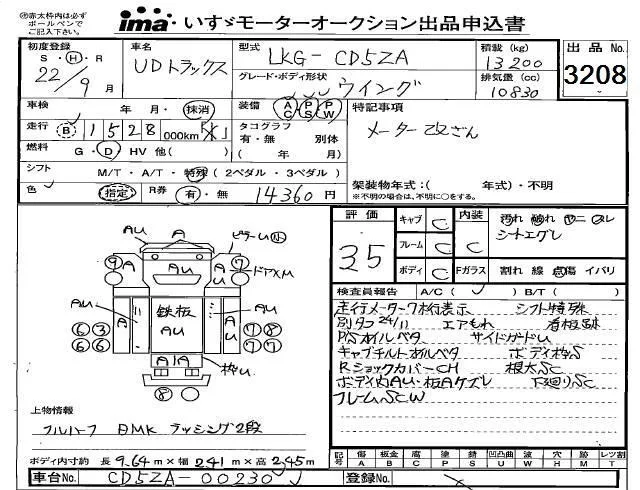 ㊟赤太枠内は必ず
ボールペンで
ご記入下さい。
ima いすゞモーターオークション出品申込書
初度登録 車名 型式 LKG-CD5ZA 積載(kg) 13200 出品No.
S・H・R 22年9月 UDトラックス グレード・ボディ形状 ウイング 排気量(cc) 10830 3208
車検 年 月・抹消 装備 AC PS PW 特記事項
走行 B 1528 000km タコグラフ メーター改ざん
有・無 別体
燃料 G・D・HV 他( ) ( 年 月)
シフト M/T・A/T・特殊(2ペダル・3ペダル) 架装物年式:( 年式)・不明
色 指定 R券 有・無 14360円 ※不明の場合は、不明に○をする。
評価 キャブ C 内装 汚れ 破れ ヤニ スレ
35 フレーム C C シートエグレ
ボディ C Fガラス 割れ 線 点傷 イバリ
検査員報告 A/C( ) B/T( )
走行メーター7桁行表示 シフト特殊
別タコ24/11 エアもれ 看板跡
P/Sオイルベタ サイドガードU
キャブチルトオイルベタ ボディ枠S
RショックカバーCH 根太SC
ボディ内AU・板Aケズレ 下廻りSC
フレームSCW
AU A AU ピラーU 小
⑨ A A ⑦ ドアXM
AU 鉄板 AU AU
⑥③ A A ⑦⑧
⑥⑥ ⑦⑦
A A A 枠U
⑧
上物情報
フルハーフ BMK ラッシング2段
ボディ内寸約 長9.64m×幅2.41m×高2.45m
記号 傷A 板金B 腐C 塗P 錆S 凹凸曲U 波W 穴H 歪M レツ割T
車台No. CD5ZA-00230 登録No.